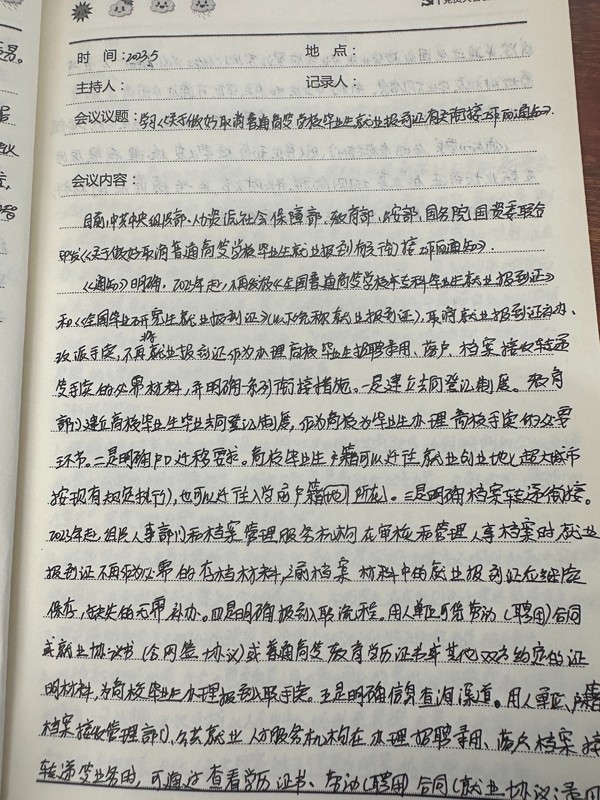 时 间：2023.5 地 点：
主持人： 记录人：
会议议题：学习《关于做好取消普通高等学校毕业生就业报到证有关衔接工作的通知》.
会议内容：
目前,中共中央组织部、人力资源社会保障部、教育部、公安部、国务院国资委联合
印发《关于做好取消普通高等学校毕业生就业报到有关衔接工作的通知》.
《通知》明确，2023年起，不再发放《全国普通高等学校本专科毕业生就业报到证》
和《全国毕业研究生就业报到证》(以下统称就业报到证),取消就业报到证补办、
改派手续,不再将就业报到证作为办理高校毕业生招聘录用、落户、档案接收转递
等手续的必需材料,并明确一系列衔接措施。一是建立去向登记制度。教育
部门建立高校毕业生毕业去向登记制度,作为高校为毕业生办理离校手续的必要
环节。二是明确户口迁移要求。高校毕业生户籍可以迁往就业创业地(超大城市
按现有规定执行),也可以迁往入学前户籍地所在。三是明确档案转递衔接。
2023年起,组织人事部门和档案管理服务机构在审核和管理人事档案时,就业
报到证不再作为必需的存档材料,之前档案材料中的就业报到证应继续
保存,缺失的无需补办。四是明确报到入职流程。用人单位可凭劳动(聘用)合同
或就业协议书(含网签协议)或普通高等教育学历证书或其他双方约定的证
明材料,为高校毕业生办理报到入职手续。五是明确信息查询渠道。用人单位、户籍
档案接收管理部门、公共就业人才服务机构在办理招聘录用、落户、档案接
转递等业务时,可通过查看学历证书、劳动(聘用)合同(就业协议